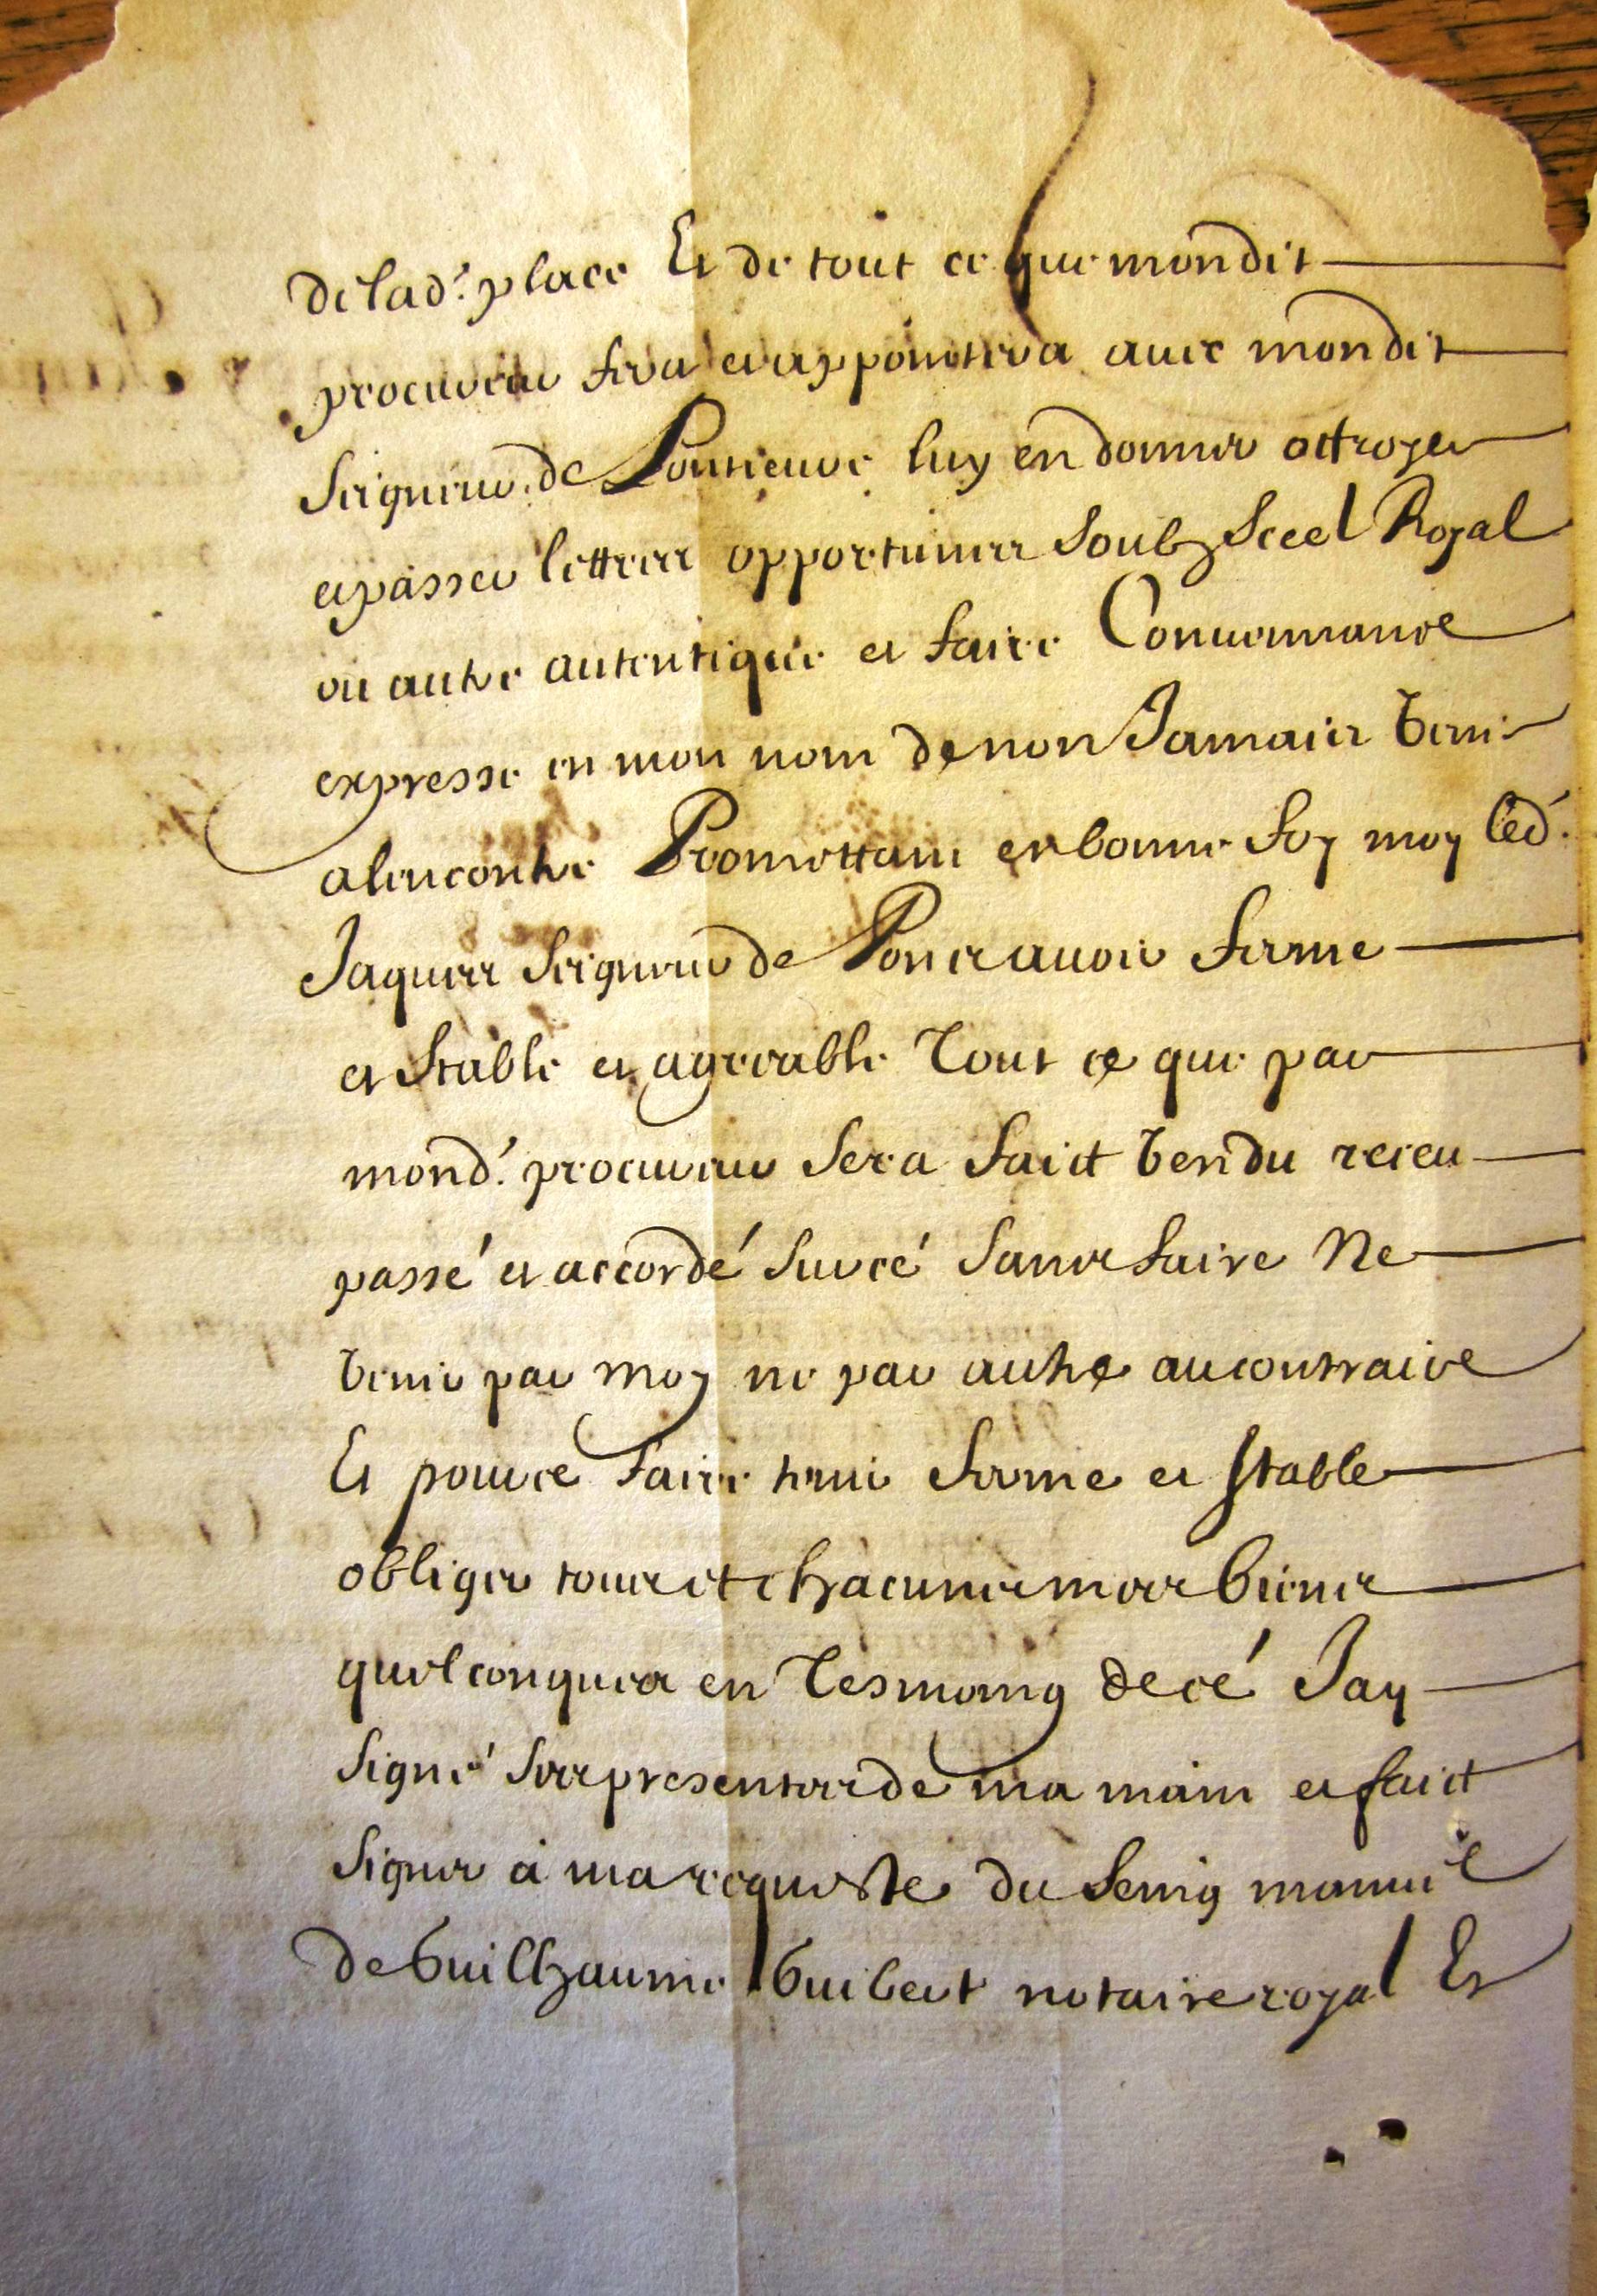 de lad.^e place Et de tout ce que mondit
procureur fera et appointera avec mondit
Seigneur de luy en donner octroyer
et passer lettres opportunes Soubz Sceel Royal
ou autre autentique et faire Convenance
expresse en mon nom de non Jamais venir
alencontre Promettant en bonne foy moy led.
Jaques Seigneur de Pons avoir ferme
et Stable et agreable Tout ce que par
mond. procureur Sera faict vendu receu
passé et accordé Sur cé Sans faire Ne
venir par moy ne par autre au contraire
Et pour ce faire tenir ferme et Stable
obliger tous et chacuns mes biens
quelconques en Tesmoing de cé Jay
Signé Ses presentes de ma main et faict
Signer à ma requeste du Seing manuel
de Guilhaume Guibert notaire royal Et